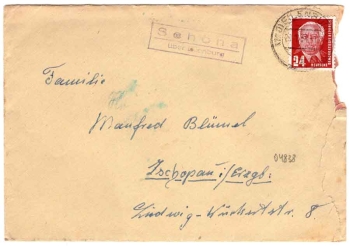 Schöna
über
24
Familie
Manfred Blümel
Zschopau i/Erzgb.
04838
Ludwig-Würkert-Str. 8